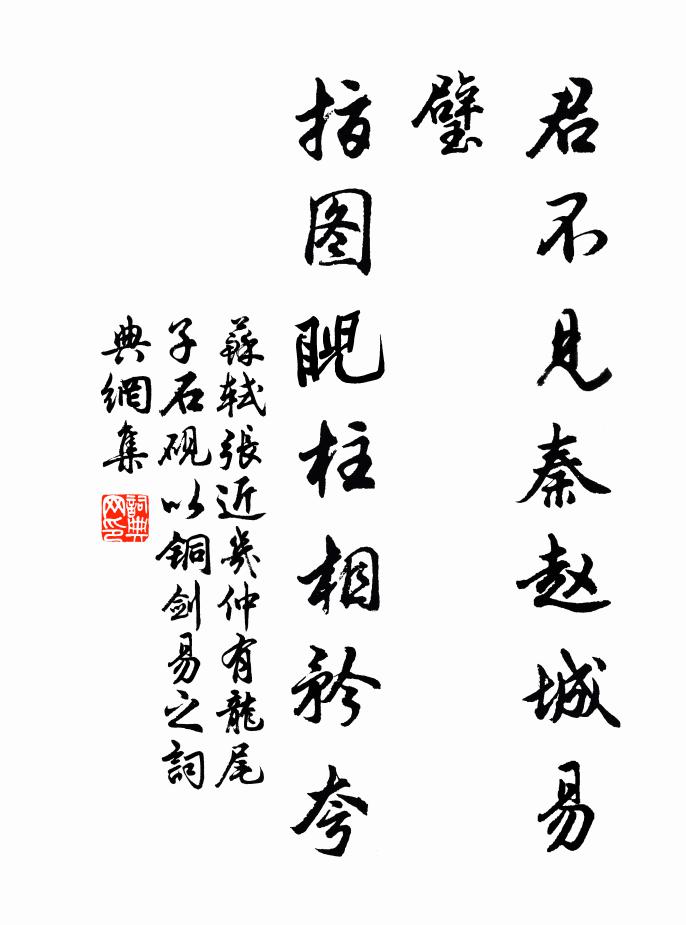 君不見秦赵城易
璧
指图睨柱相矜夸
蘇轼張近幾仲有龍尾
子石硯以铜剑易之詞
典網集
詞典网印